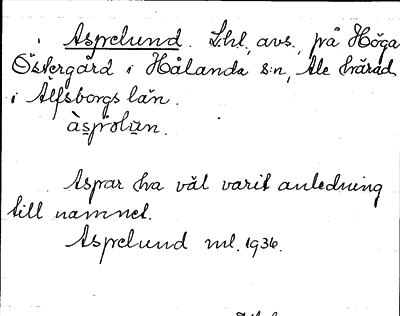 Aspelund. Lhl, avs., på Höga
Östergård i Hålanda s:n, Ale härad
i Älfsborgs län.
àspəlun.
Aspar ha väl varit anledning
till namnet.
Aspelund ml. 1936.